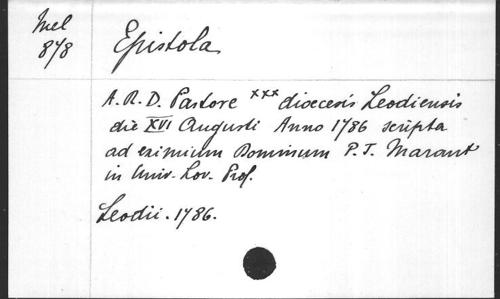 Mel
878
Epistola
A. R. D. Pastore xxx dioecesis Leodiensis
die XVI Augusti Anno 1786 scripta
ad eximium Dominum P. J. Marant
in Univ. Lov. Prof.
Leodii. 1786.